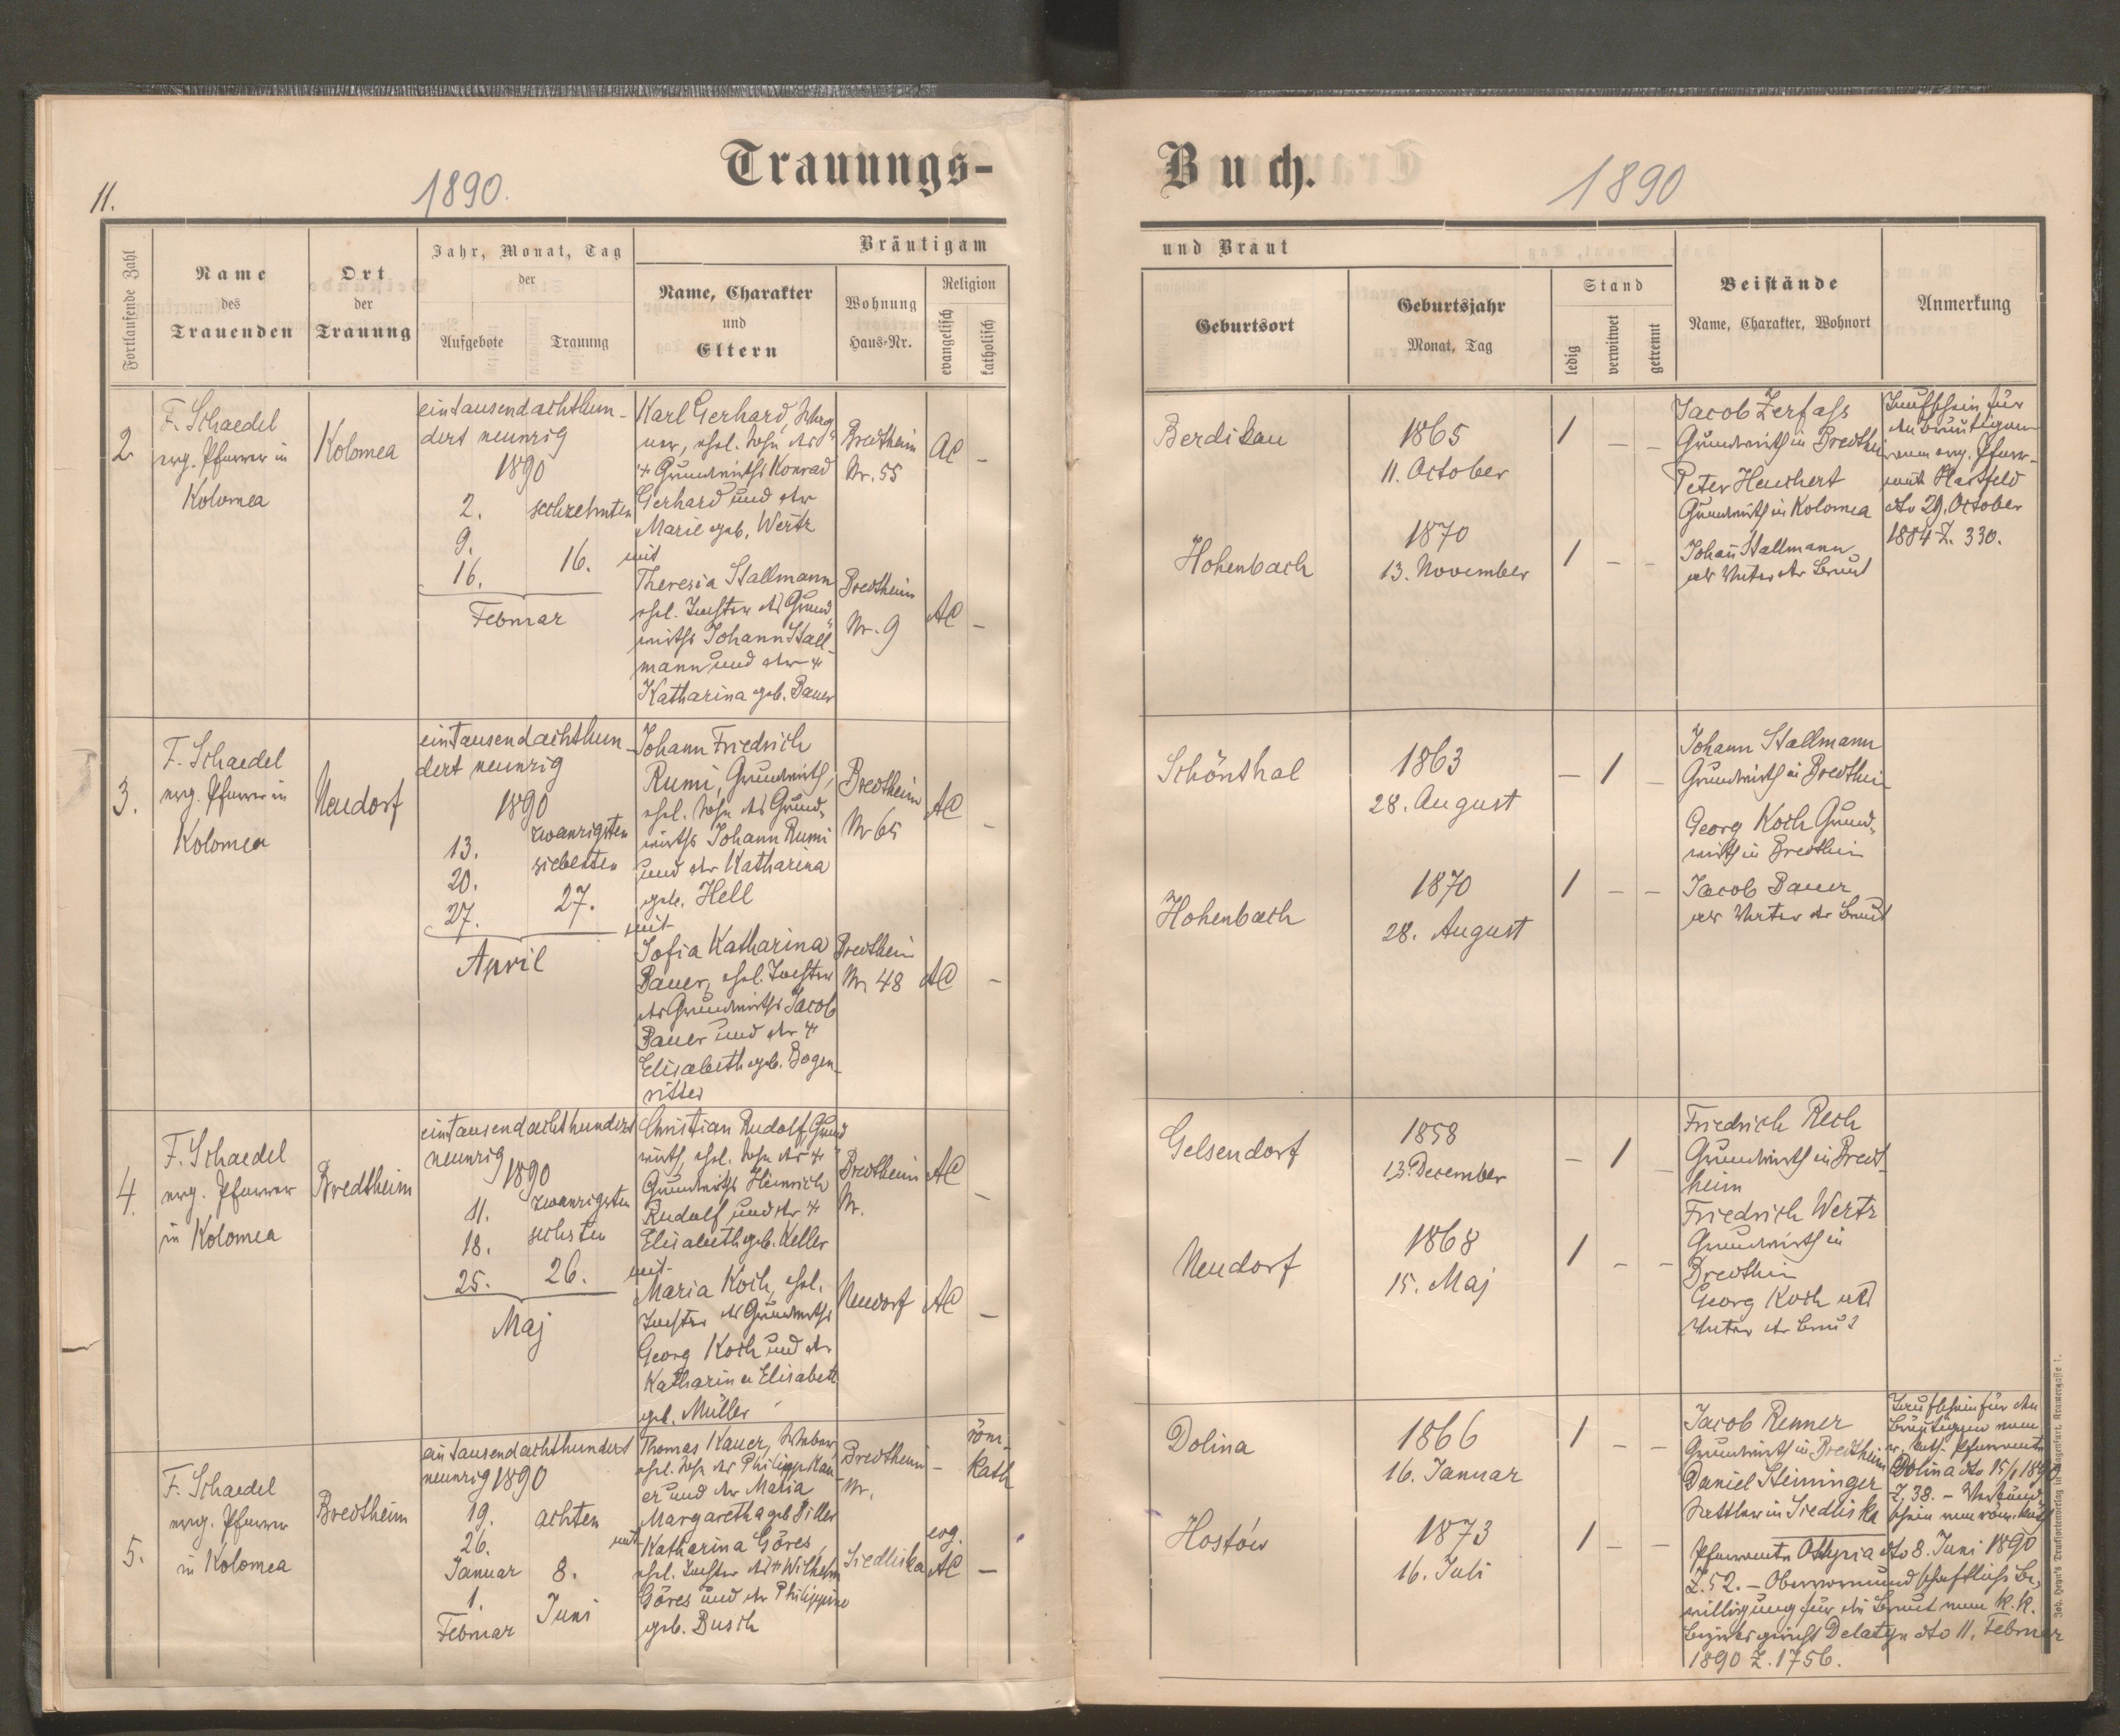 11.
1890.
Trauungs-
Fortlaufende Zahl
Name
des
Trauenden
Ort
der
Trauung
Jahr, Monat, Tag
der
Aufgebote
Trauung
Bräutigam
Name, Charakter
und
Eltern
Wohnung
Haus-Nr.
Religion
evangelisch
katholisch
2
F. Schaedel
evg. Pfarrer in
Kolomea
Kolomea
eintausendachthun-
dert neunzig
1890
2. sechzehnten
9.
16. 16.
Februar
Karl Gerhard, Wag-
ner, ehel. Sohn des
† Grundwirths Konrad
Gerhard und der
Marie geb. Wertz
mit
Theresia Stallmann
ehel. Tochter des Grund-
wirths Johann Stall-
mann und der †
Katharina geb. Bauer
Bredtheim
Nr. 55
AC –
Bredtheim
Nr. 9
AC –
3.
F. Schaedel
evg. Pfarrer in
Kolomea
Neudorf
eintausendachthun-
dert neunzig
1890
13. zwanzigsten
20. siebenten
27. 27.
April
Johann Friedrich
Rumi, Grundwirth,
ehel. Sohn des Grund-
wirths Johann Rumi
und der Katharina
geb. Hell
mit
Sofia Katharina
Bauer, ehel. Tochter
des Grundwirths Jacob
Bauer und der †
Elisabeth geb. Bogen-
ritter
Bredtheim
Nr 65
AC –
Bredtheim
Nr. 48
AC –
4.
F. Schaedel
evg. Pfarrer
in Kolomea
Bredtheim
eintausendachthundert
neunzig
1890
11. zwanzigsten
18. sechsten
25. 26.
Maj
Christian Rudolf, Grund-
wirth, ehel. Sohn des †
Grundwirths Heinrich
Rudolf und der †
Elisabeth geb. Keller
mit
Maria Koch, ehel.
Tochter des Grundwirths
Georg Koch und der
Katharina Elisabeth
geb. Müller
Bredtheim
Nr.
AC –
Neudorf
AC –
5.
F. Schaedel
evg. Pfarrer
in Kolomea
Bredtheim
eintausendachthundert
neunzig 1890
19. achten
26.
Januar 8.
1. Juni
Februar
Thomas Kauer, Weber,
ehel. Sohn des Philipp Kau-
er und der Maria
Margaretha geb Piller
mit Katharina Göres,
ehel. Tochter des † Wilhelm
Göres und der Philippine
geb. Busch
Bredtheim
Nr.
– röm.
kath
Siedliska
evg.
AC –
Buch.
1890
und Braut
Geburtsort
Geburtsjahr
Monat, Tag
Stand
ledig
verwitwet
getrennt
Beistände
Name, Charakter, Wohnort
Anmerkung
Berdikau
1865
11. October
1 – –
Hohenbach
1870
13. November
1 – –
Jacob Zerfass
Grundwirth in Bredtheim
Peter Heuchert
Grundwirth in Kolomea
Johann Stallmann
als Vater der Braut
Taufschein für
den Bräutigam
vom evg. Pfarr-
amte Hartfeld
dto 29. October
1884 Z. 330.
Schönthal
1863
28. August
– 1 –
Hohenbach
1870
28. August
1 – –
Johann Stallmann
Grundwirth in Bredtheim
Georg Koch Grund-
wirth in Bredtheim
Jacob Bauer
als Vater der Braut
Gelsendorf
1858
13. December
– 1 –
Neudorf
1868
15. Maj
1 – –
Friedrich Rech
Grundwirth in Bredt-
heim
Friedrich Wertz
Grundwirth in
Bredtheim
Georg Koch als
Vater der Braut
Dolina
1866
16. Januar
1 – –
Hostów
1873
16. Juli
1 – –
Jacob Renner
Grundwirth in Bredtheim
Daniel Steininger
Sattler in Siedliska
Taufschein für den
Bräutigam vom
r. kath. Pfarramte
Dolina dto 15/1 1890
Z. 38. – Verkünd-
schein vom röm. kath
Pfarramte Ottynia dto 8. Juni 1890
Z. 52. – Obervormundschaftliche Be-
willigung für die Braut vom k. k.
Bezirksgericht Delatyn dto 11. Februar
1890 Z. 1756.